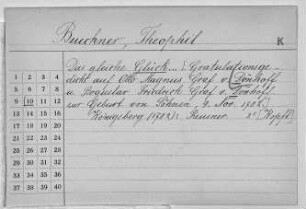 Buchner, Theophil
K
Das gleiche Glück... [Gratulationsge-
dicht auf Otto Magnus Graf v. Dönhoff
u. Bogislav Friedrich Graf v. Dönhoff
zur Geburt von Söhnen, 9. Nov. 1702.]
Königsberg (1702): Reusner. 2° [Kopft.]
1 2 3 4
5 6 7 8
9 10 11 12
13 14 15 16
17 18 19 20
21 22 23 24
25 26 27 28
29 30 31 32
33 34 35 36
37 38 39 40